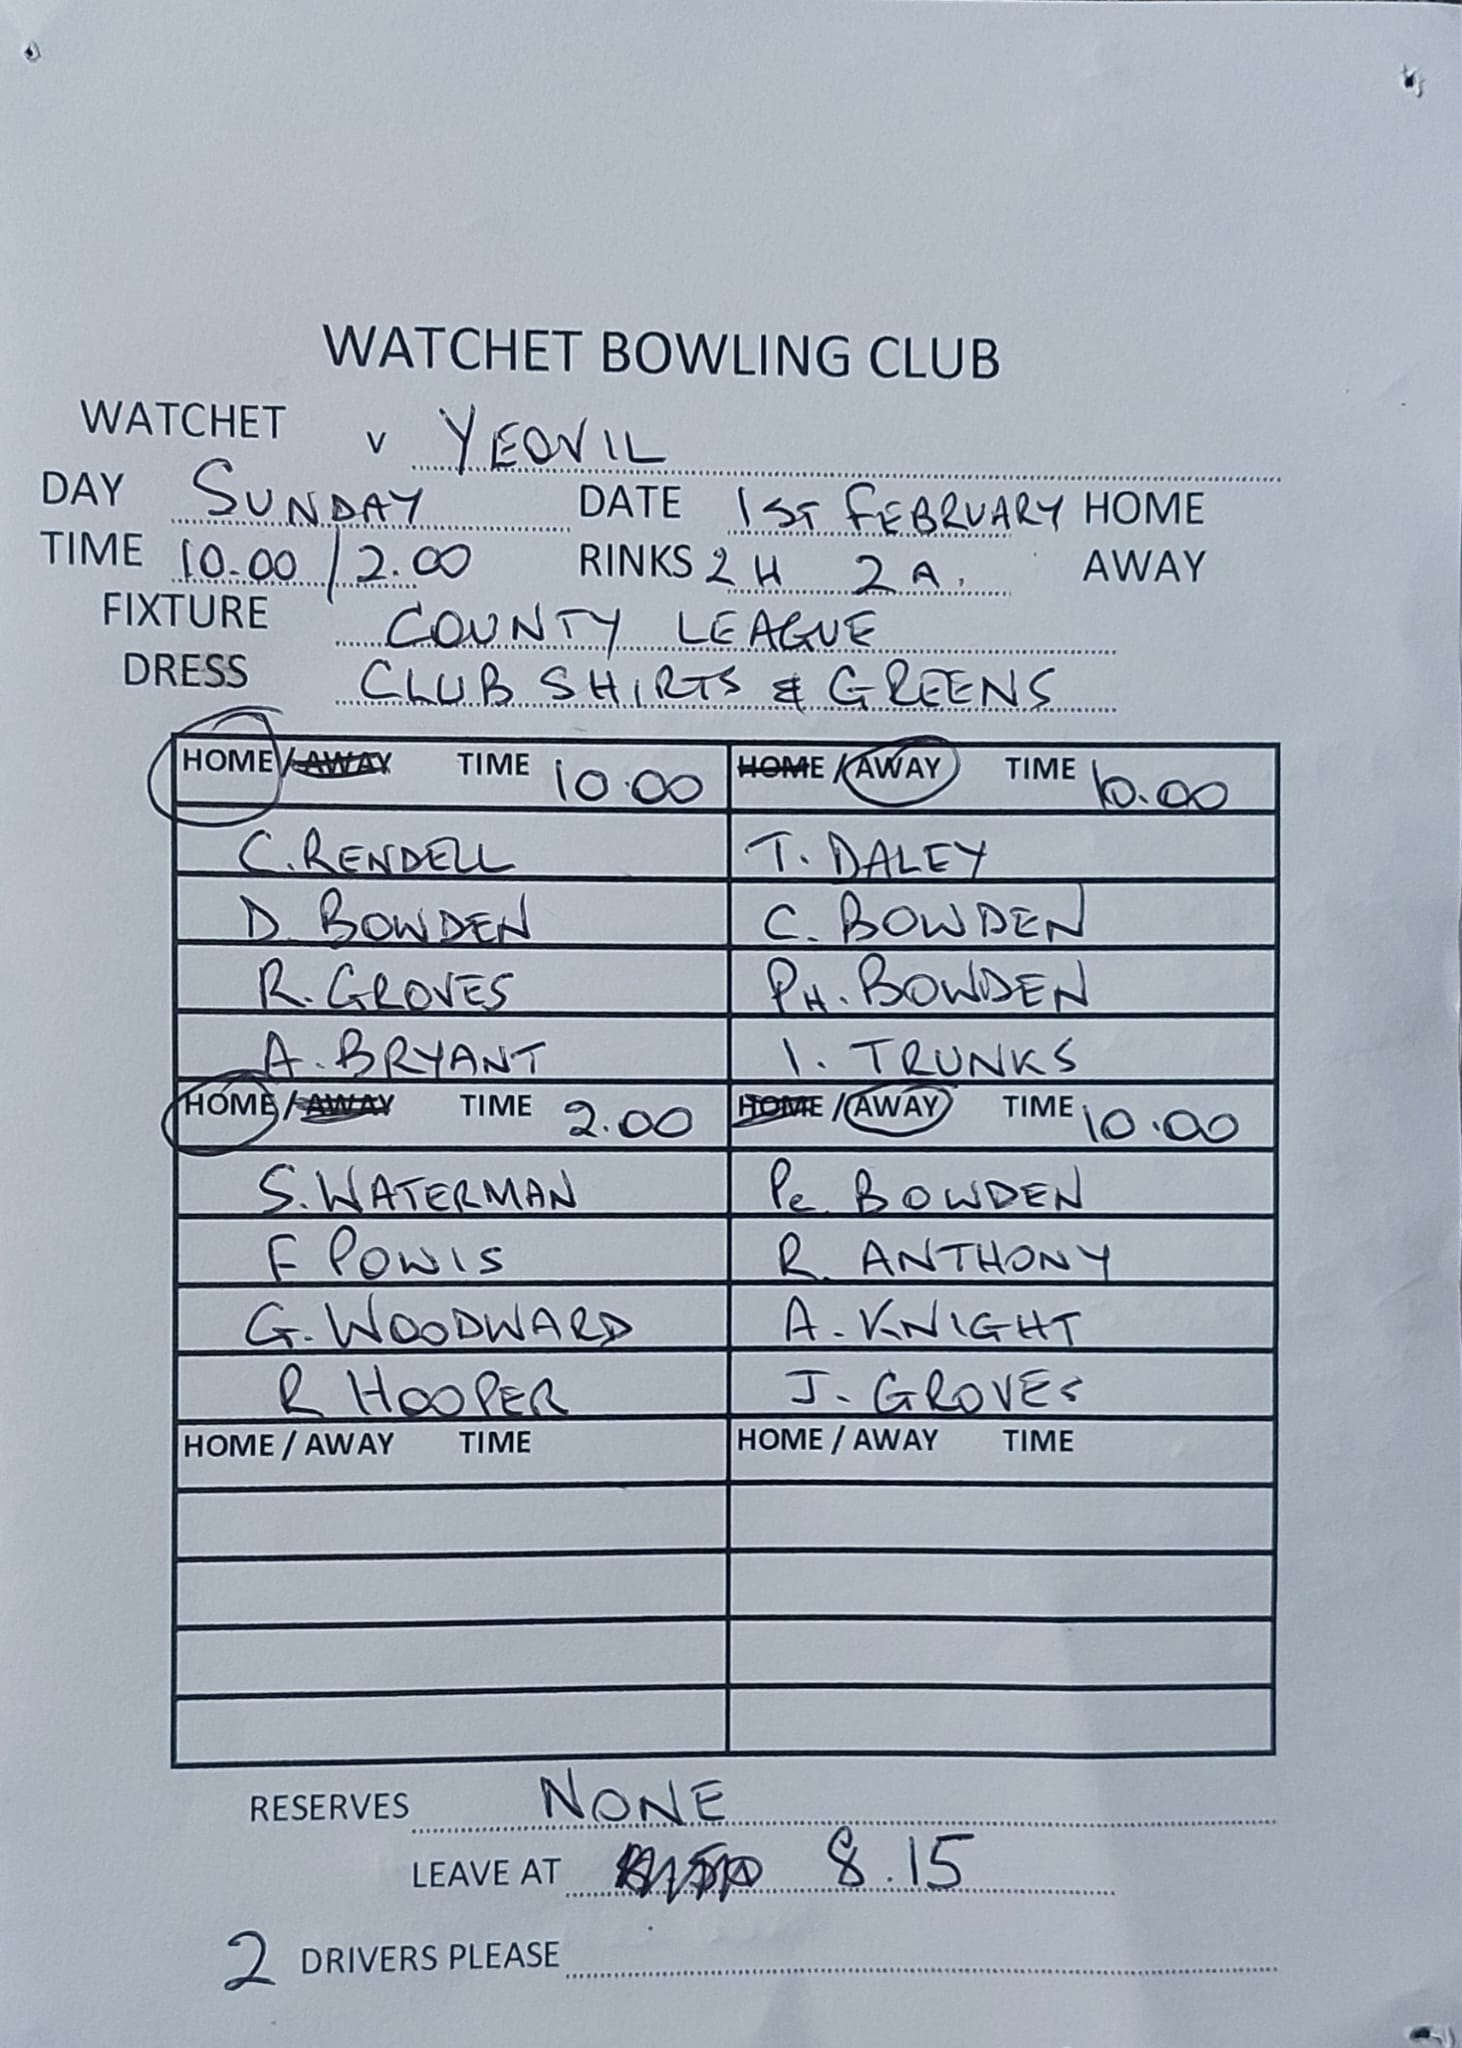 WATCHET BOWLING CLUB
WATCHET v YEOVIL
DAY SUNDAY DATE 1ST FEBRUARY HOME
TIME 10.00 / 2.00 RINKS 2H 2A. AWAY
FIXTURE COUNTY LEAGUE
DRESS CLUB SHIRTS & GREENS
HOME / AWAY TIME 10.00 HOME / AWAY TIME 10.00
C. RENDELL T. DALEY
D. BOWDEN C. BOWDEN
R. GROVES PH. BOWDEN
A. BRYANT I. TRUNKS
HOME / AWAY TIME 2.00 HOME / AWAY TIME 10.00
S. WATERMAN Pe BOWDEN
F POWIS R. ANTHONY
G. WOODWARD A. KNIGHT
R HOOPER J. GROVES
HOME / AWAY TIME HOME / AWAY TIME
RESERVES NONE
LEAVE AT 8.15
2 DRIVERS PLEASE